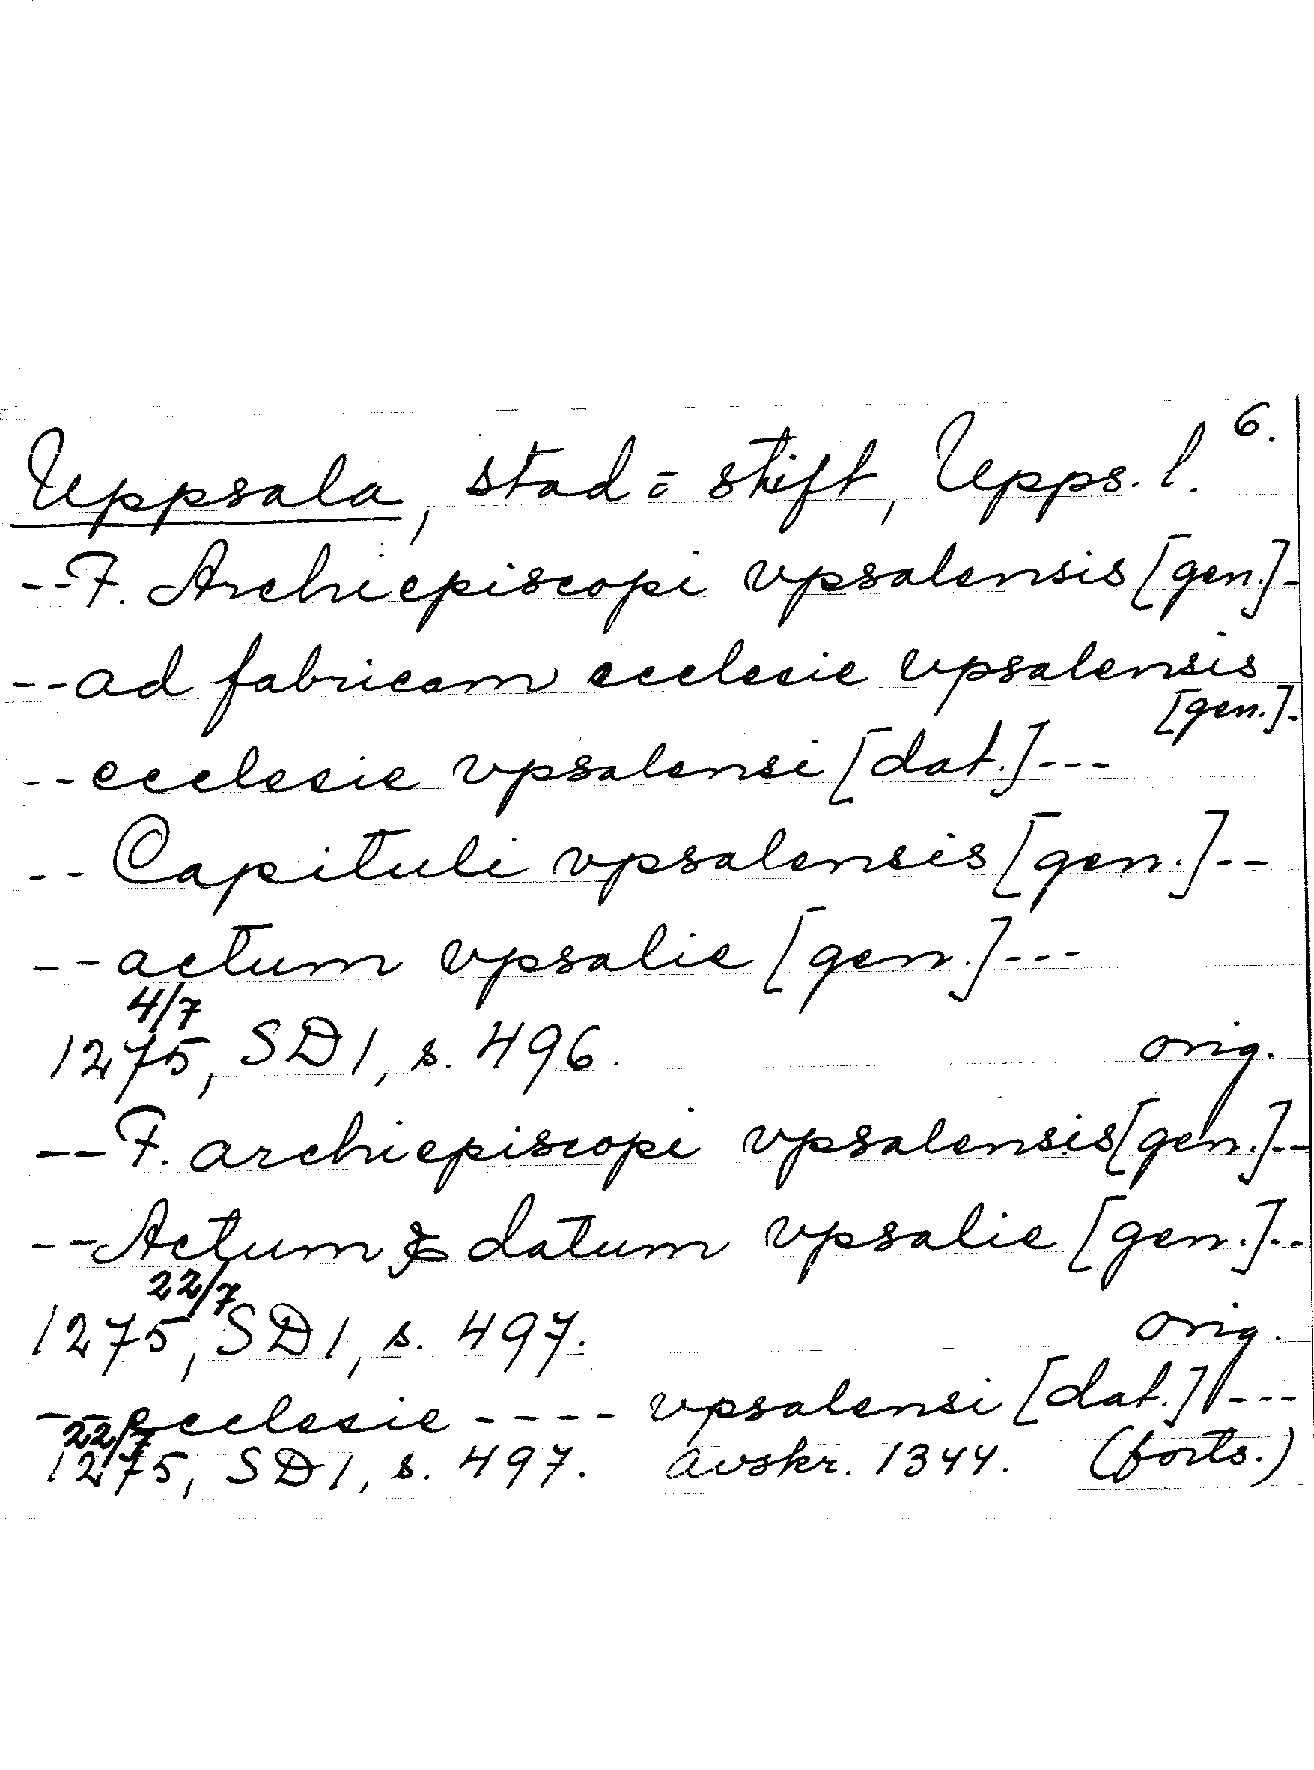 6.
Uppsala, stad o stift, Upps. l.
--F. Archiepiscopi vpsalensis [gen.]-
--ad fabricam ecclesie vpsalensis
[gen.]-
--ecclesie vpsalensi [dat.]---
-- Capituli vpsalensis [gen.]--
--actum vpsalie [gen.]---
4/7
1275, SD 1, s. 496. orig.
--F. archiepiscopi vpsalensis [gen.]--
--Actum & datum vpsalie [gen.]--
22/7
1275, SD 1, s. 497. orig.
--ecclesie ---- vpsalensi [dat.] ---
22/7
1275, SD 1, s. 497. avskr. 1344. (forts.)